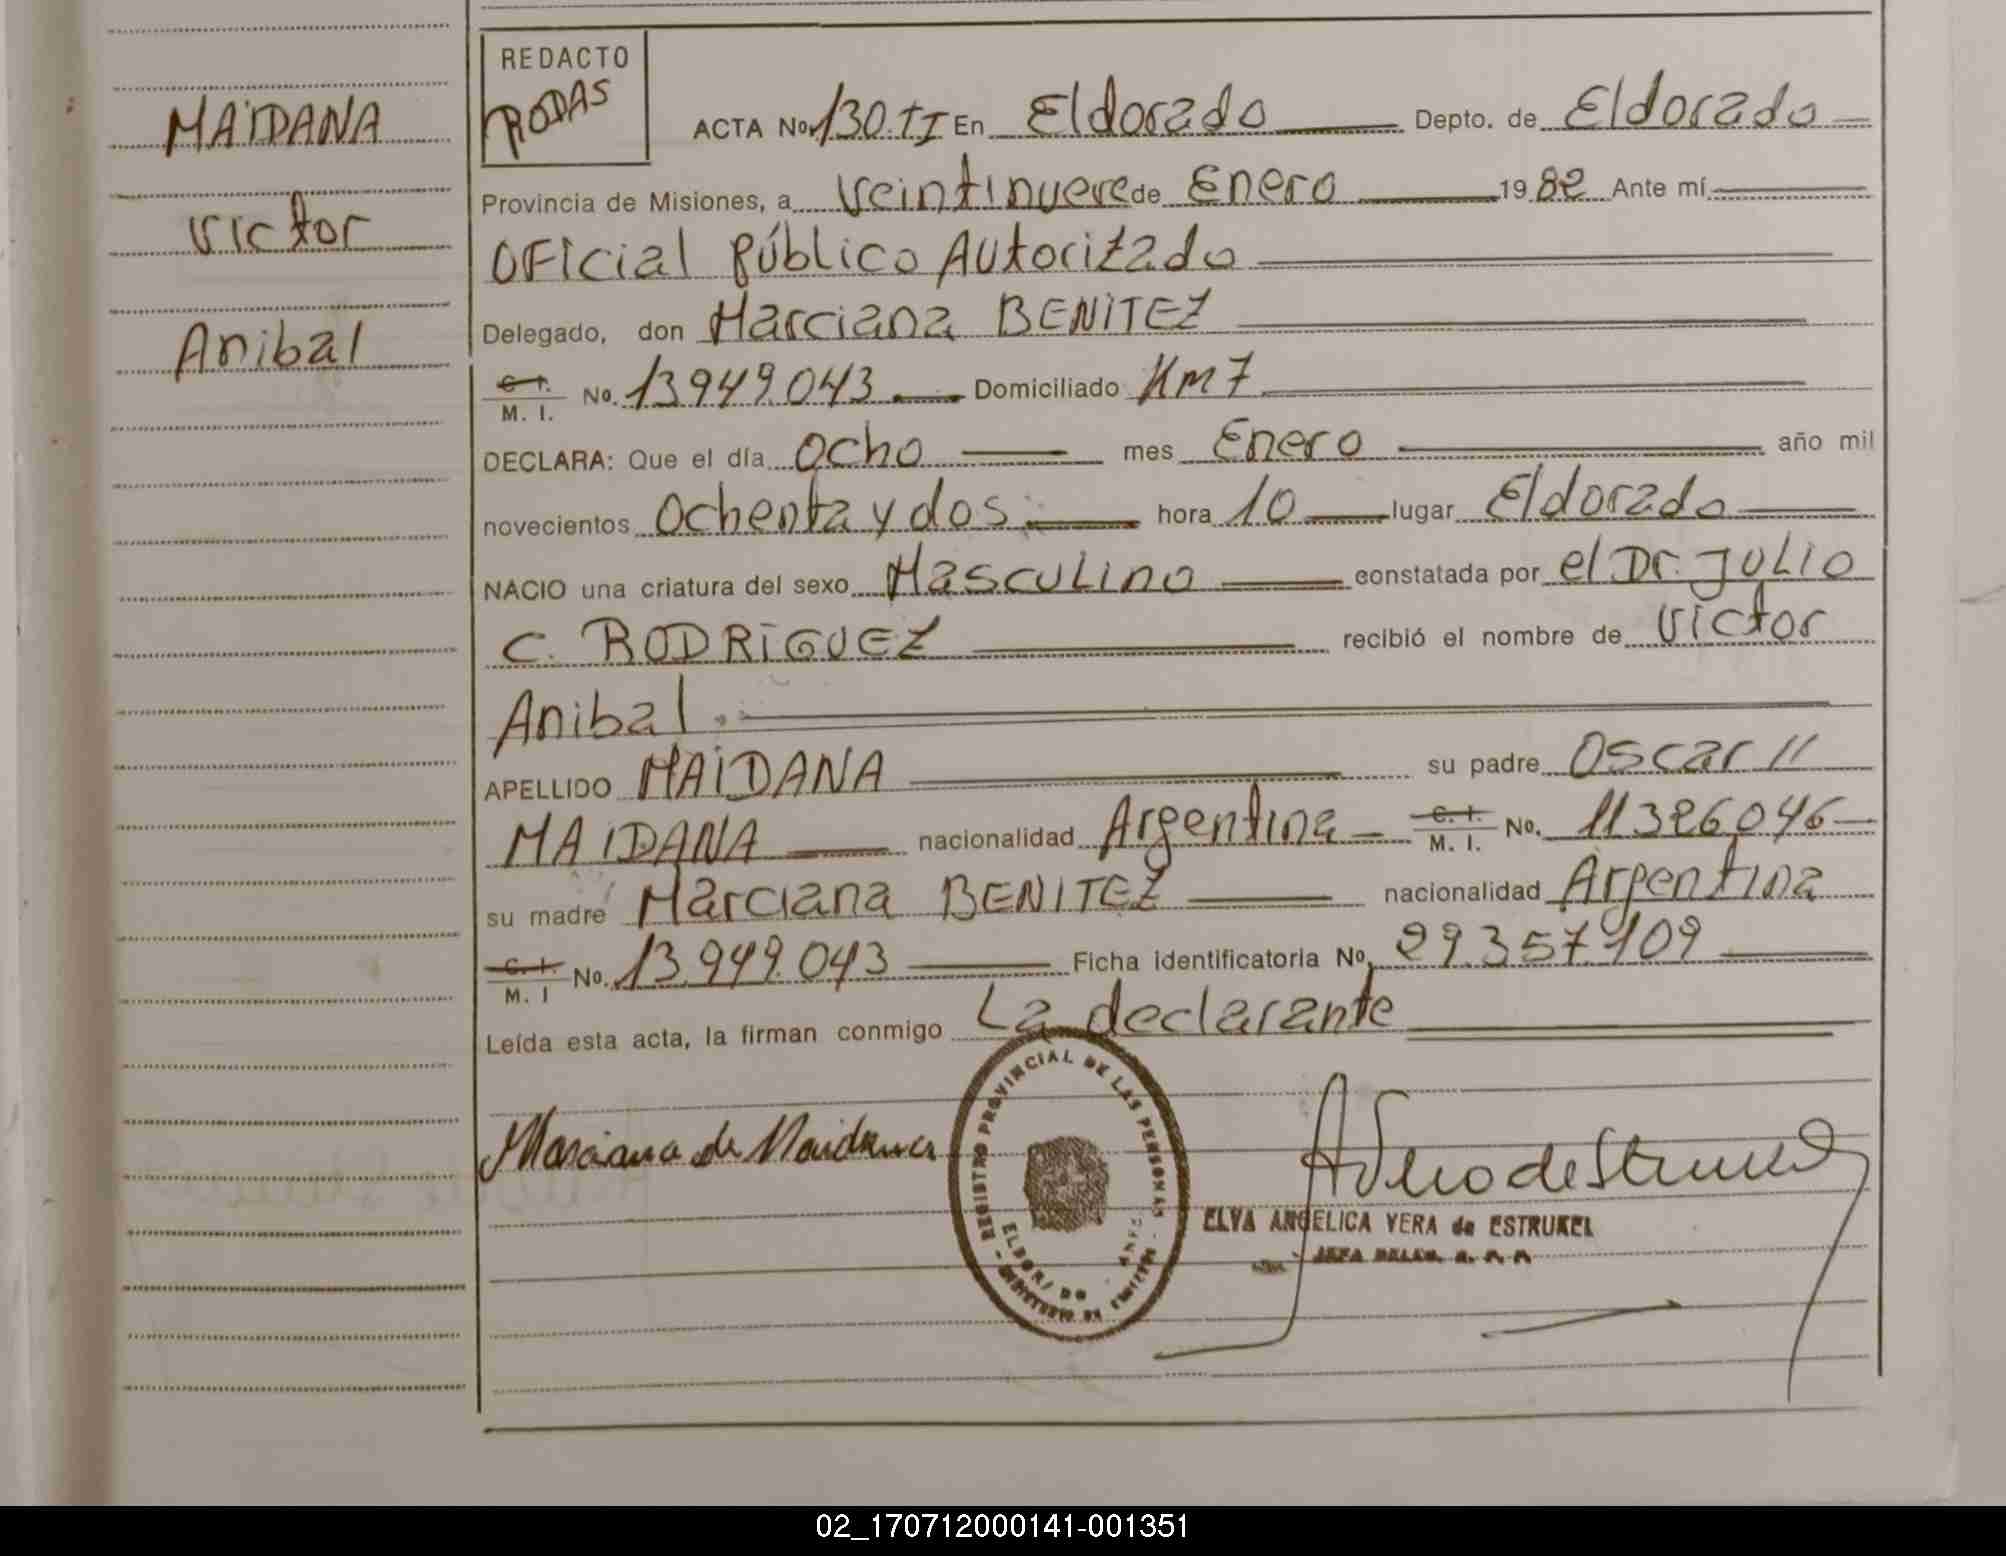 MAIDANA
Victor
Anibal
REDACTO
RODAS
ACTA No. 130.II En Eldorado Depto. de Eldorado
Provincia de Misiones, a Veintinueve de Enero 1982 Ante mí
Oficial Público Autorizado
Delegado, don Marciana BENITEZ
C. I. M. I. No. 13949.043 Domiciliado Km 7
DECLARA: Que el día ocho mes Enero año mil
novecientos Ochenta y dos hora 10 lugar Eldorado
NACIO una criatura del sexo Masculino constatada por el Dr. JULIO
C. RODRIGUEZ recibió el nombre de Victor
Anibal.
APELLIDO MAIDANA su padre Oscar //
MAIDANA nacionalidad Argentina C. I. M. I. No. 11326046
su madre Marciana BENITEZ nacionalidad Argentina
C. I. M. I No. 13.949.043 Ficha identificatoria No. 29.357.409
Leída esta acta, la firman conmigo La declarante
Marciana de Maidana
REGISTRO PROVINCIAL DE LAS PERSONAS
ELDORADO
ELVA ANGELICA VERA de ESTRUKEL
02_170712000141-001351